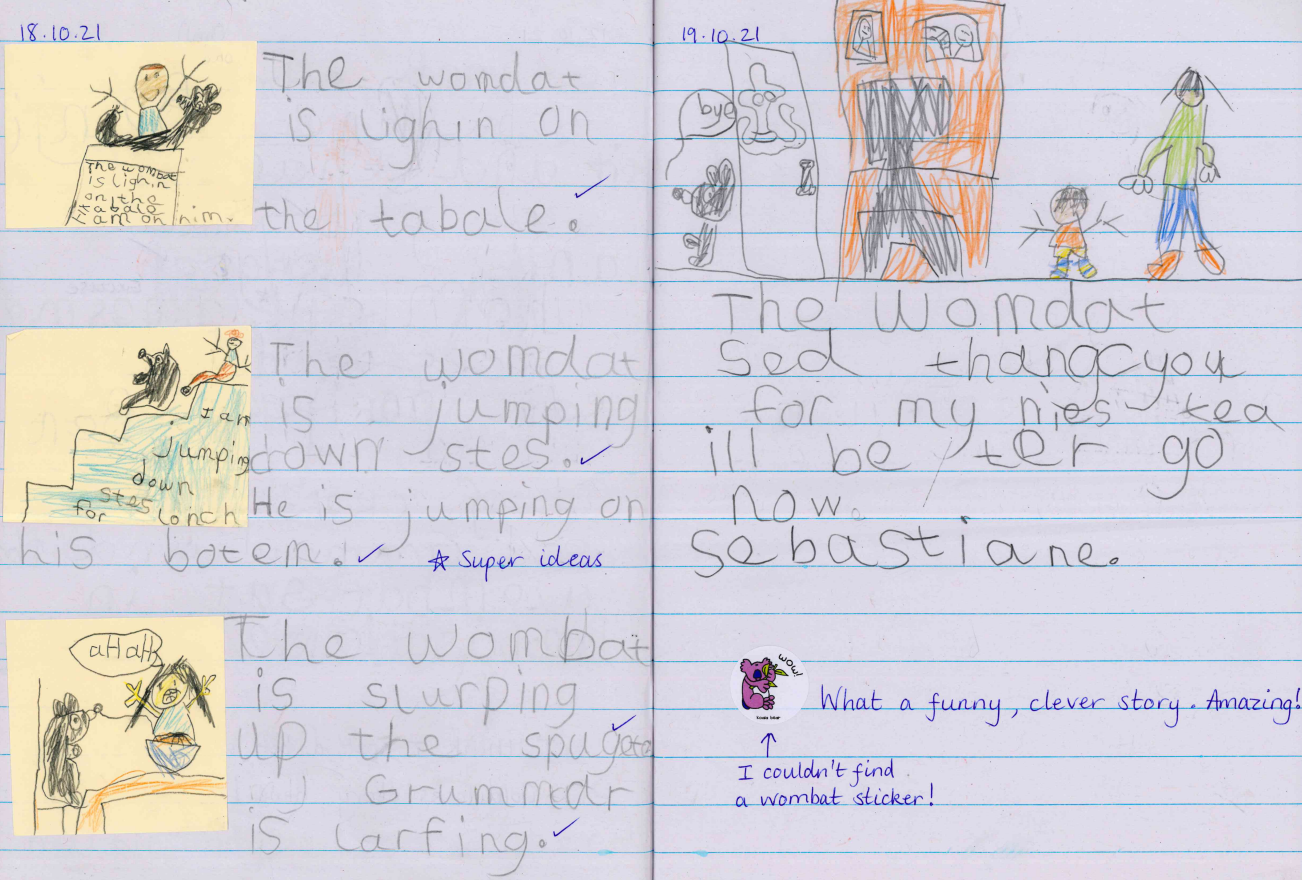 18.10.21
The womdat
is lighin on
the tabale.
The wombat
is lighin
on the
tabale
I am on him.
The womdat
is jumping
down stes.
He is jumping on
his botem.
I am
jumping
down
stes
for lonch
☆ Super ideas
aHaHa
The wombat
is slurping
up the
Grummar
is larfing.
19.10.21
bye
The womdat
Sed thangcyou
for my nies tea
ill be ter go
now.
Sebastiane.
WOW!
Koala bear
What a funny, clever story. Amazing!
↑
I couldn't find
a wombat sticker!